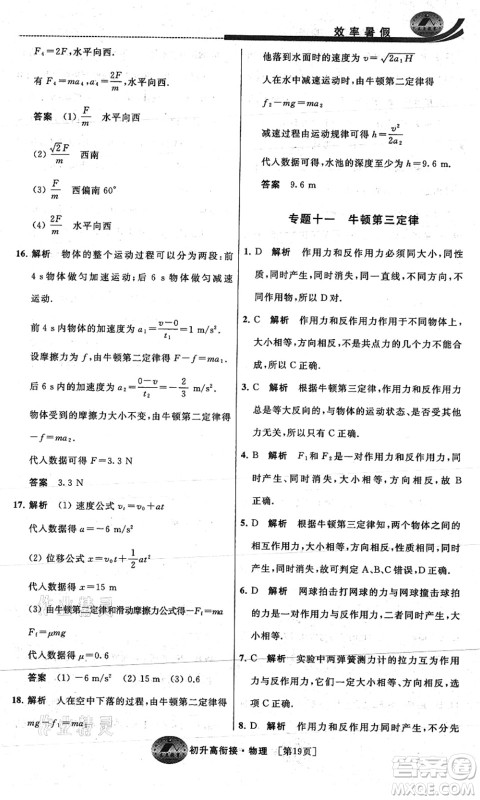 效率暑假
F₄=2F,水平向西.
有 F₄=ma₄,a₄=2F/m,水平向西.
答案 (1)F/m 水平向西
(2)√2F/m 西南
(3)F/m 西偏南 60°
(4)2F/m 水平向西
16. 解析 物体的整个运动过程可以分为两段:前
4 s物体做匀加速运动;后 6 s物体做匀减速
运动.
前 4 s内物体的加速度为 a₁=(v−0)/t₁=1 m/s².
设摩擦力为 Ff,由牛顿第二定律得 F−f=ma₁.
后 6 s内物体的加速度 a₂=(0−v)/t₂=−2/3 m/s².
物体受到的摩擦力大小不变,由牛顿第二定律得
−f=ma₂.
代人数据可得 F=3.3 N
答案 3.3 N
17. 解析 (1) 速度公式 v=v₀+at
代人数据得 a=−6 m/s²
(2) 位移公式 x=v₀t+1/2at²
代人数据可得 x=15 m
(3) 由牛顿第二定律和滑动摩擦力公式得−Ff=ma
Ff=μmg
代人数据可得 μ=0.6
答案 (1)−6 m/s² (2)15 m (3)0.6
18. 解析 人在空中下落的过程中,由牛顿第二定律得
他落到水面时的速度为 v=√2a₁H
人在水中减速运动时,由牛顿第二定律得
f₂−mg=ma₂
减速过程由运动规律可得 h=v²/2a₂
代人数据可得,水池的深度至少为 h=9.6 m.
答案 9.6 m
专题十一 牛顿第三定律
1. D 解析 作用力和反作用力必须同大小,同性
质,同时产生,同时消失,同一直线,不同方向,不
同物体,所以 D 对.
2. C 解析 作用力和反作用力作用于不同物体上,
大小相等,方向相反,不是共点力的几个力不能求
合力,所以 C 正确.
3. C 解析 根据牛顿第三定律,作用力与反作用力
总是等大反向的,与物体的运动状态无关,C正确.
4. B 解析 F₁和F₂是一对作用力和反作用力,同
时产生,同时消失,大小相等,方向相反,故 B 正确.
5. D 解析 根据牛顿第三定律知,两个物体之间的
作用力与反作用力大小相等,方向相反,同时产
生,同时消失,故可以判定 A、B、C错误,D正确.
6. C 解析 网球拍击打网球的力与网球撞击球拍
的力是作用力与反作用力,二者同时产生、大小相
等、方向相反.
7. C 解析 实验中两弹簧测力计的拉力互为作用
力与反作用力,它们一定大小相等、方向相反,选
项 C 正确.
8. D 解析 作用力和反作用力同时产生,不分先
初升高衔接·物理 [第19页]